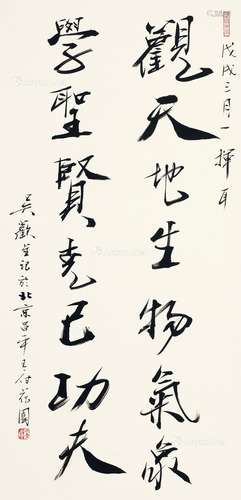 戊戌三月一揮耳
觀天地生物氣象
學聖賢克己功夫
吳歡並記於北京昌平王付花園